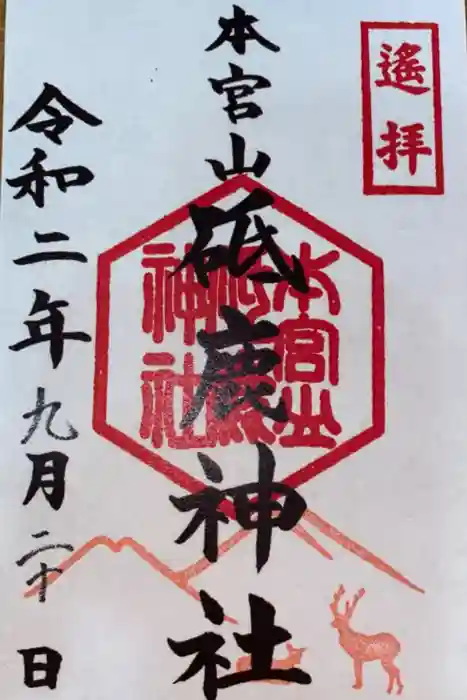 遙拝
本宮山
砥鹿神社
本宮山
砥鹿
神社
令和二年九月二十日